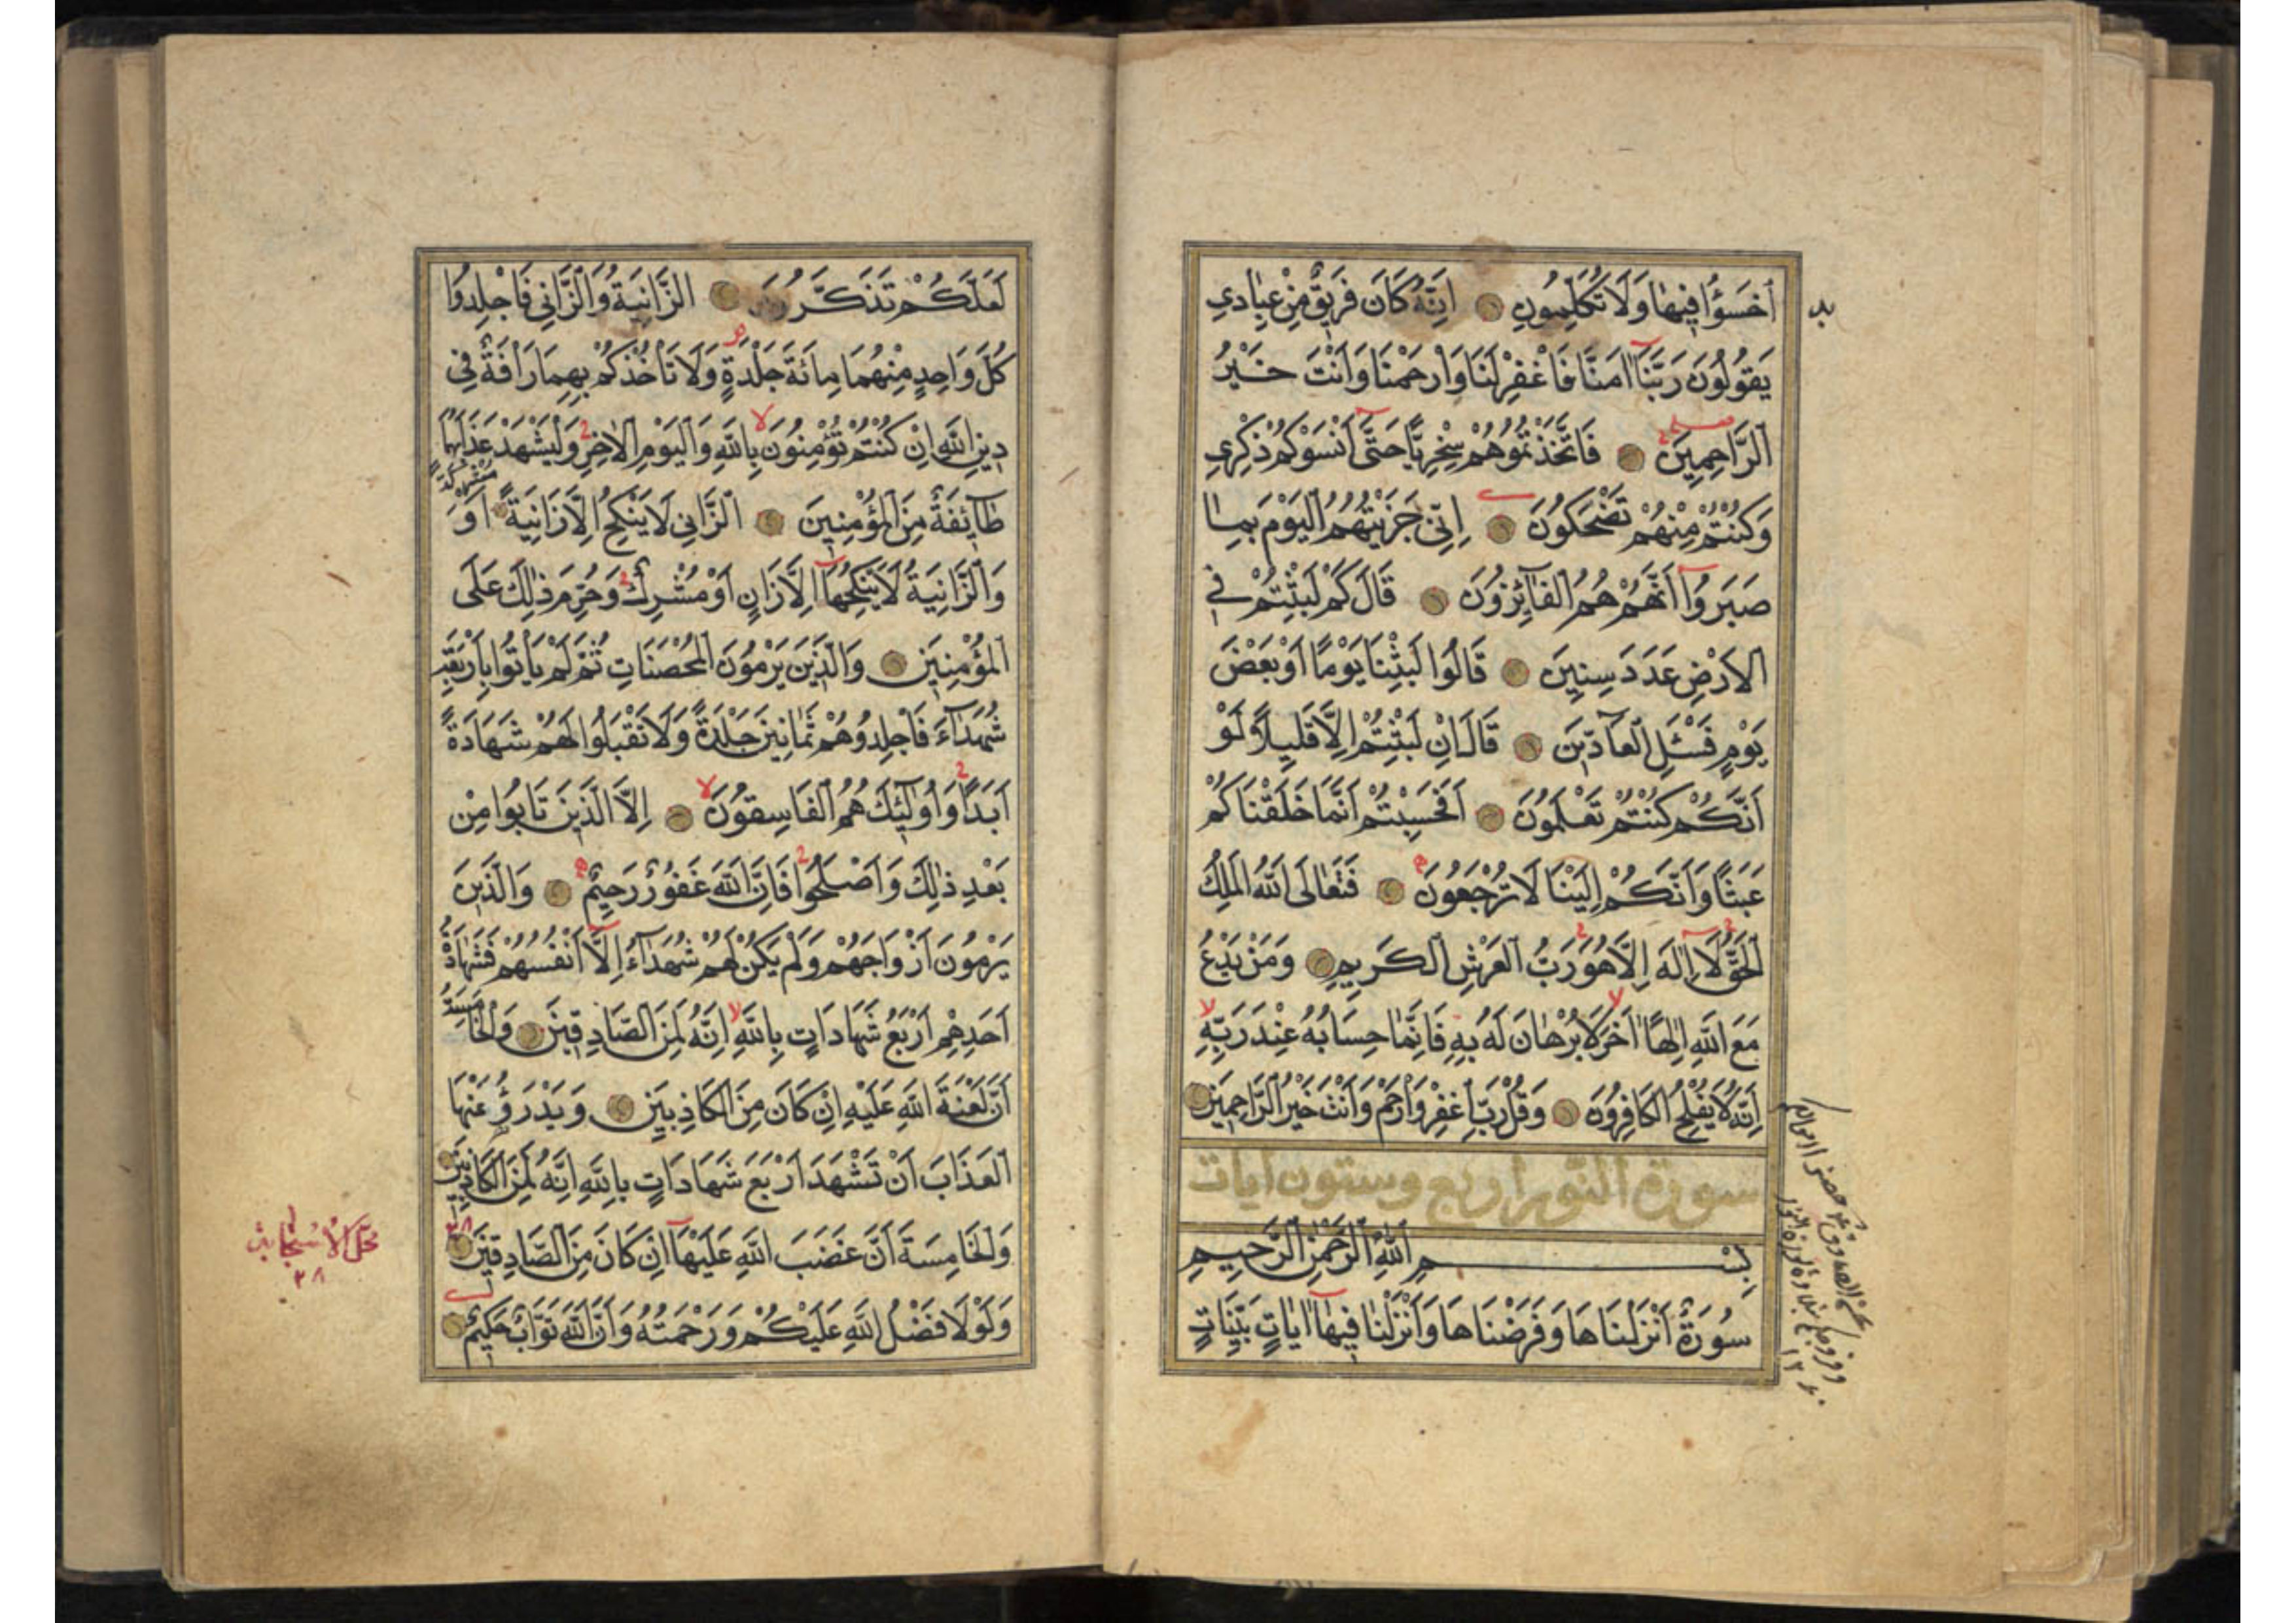 اَخْسَؤُا فِيهَا وَلَا تُكَلِّمُونِ اِنَّهُ كَانَ فَرِيقٌ مِنْ عِبَادِي
يَقُولُونَ رَبَّنَا اٰمَنَّا فَاغْفِرْ لَنَا وَارْحَمْنَا وَاَنْتَ خَيْرُ
الرَّاحِمِينَ فَاتَّخَذْتُمُوهُمْ سِخْرِيًّا حَتّٰى اَنْسَوْكُمْ ذِكْرِي
وَكُنْتُمْ مِنْهُمْ تَضْحَكُونَ اِنِّي جَزَيْتُهُمُ الْيَوْمَ بِمَا
صَبَرُوا اَنَّهُمْ هُمُ الْفَائِزُونَ قَالَ كَمْ لَبِثْتُمْ فِي
الْاَرْضِ عَدَدَ سِنِينَ قَالُوا لَبِثْنَا يَوْمًا اَوْ بَعْضَ
يَوْمٍ فَسْئَلِ الْعَادِّينَ قَالَ اِنْ لَبِثْتُمْ اِلَّا قَلِيلًا لَوْ
اَنَّكُمْ كُنْتُمْ تَعْلَمُونَ اَفَحَسِبْتُمْ اَنَّمَا خَلَقْنَاكُمْ
عَبَثًا وَاَنَّكُمْ اِلَيْنَا لَا تُرْجَعُونَ فَتَعَالَى اللّٰهُ الْمَلِكُ
الْحَقُّ لَا اِلٰهَ اِلَّا هُوَ رَبُّ الْعَرْشِ الْكَرِيمِ وَمَنْ يَدْعُ
مَعَ اللّٰهِ اِلٰهًا اٰخَرَ لَا بُرْهَانَ لَهُ بِهِ فَاِنَّمَا حِسَابُهُ عِنْدَ رَبِّهِ
اِنَّهُ لَا يُفْلِحُ الْكَافِرُونَ وَقُلْ رَبِّ اغْفِرْ وَارْحَمْ وَاَنْتَ خَيْرُ الرَّاحِمِينَ
سورة النور اربع وستون ايات
بِسْمِ اللّٰهِ الرَّحْمٰنِ الرَّحِيمِ
سُورَةٌ اَنْزَلْنَاهَا وَفَرَضْنَاهَا وَاَنْزَلْنَا فِيهَا اٰيَاتٍ بَيِّنَاتٍ
لَعَلَّكُمْ تَذَكَّرُونَ الزَّانِيَةُ وَالزَّانِي فَاجْلِدُوا
كُلَّ وَاحِدٍ مِنْهُمَا مِائَةَ جَلْدَةٍ وَلَا تَأْخُذْكُمْ بِهِمَا رَاْفَةٌ فِي
دِينِ اللّٰهِ اِنْ كُنْتُمْ تُؤْمِنُونَ بِاللّٰهِ وَالْيَوْمِ الْاٰخِرِ وَلْيَشْهَدْ عَذَابَهُمَا
طَائِفَةٌ مِنَ الْمُؤْمِنِينَ الزَّانِي لَا يَنْكِحُ اِلَّا زَانِيَةً اَوْ مُشْرِكَةً
وَالزَّانِيَةُ لَا يَنْكِحُهَا اِلَّا زَانٍ اَوْ مُشْرِكٌ وَحُرِّمَ ذٰلِكَ عَلَى
الْمُؤْمِنِينَ وَالَّذِينَ يَرْمُونَ الْمُحْصَنَاتِ ثُمَّ لَمْ يَأْتُوا بِاَرْبَعَةِ
شُهَدَاءَ فَاجْلِدُوهُمْ ثَمَانِينَ جَلْدَةً وَلَا تَقْبَلُوا لَهُمْ شَهَادَةً
اَبَدًا وَاُولٰئِكَ هُمُ الْفَاسِقُونَ اِلَّا الَّذِينَ تَابُوا مِنْ
بَعْدِ ذٰلِكَ وَاَصْلَحُوا فَاِنَّ اللّٰهَ غَفُورٌ رَحِيمٌ وَالَّذِينَ
يَرْمُونَ اَزْوَاجَهُمْ وَلَمْ يَكُنْ لَهُمْ شُهَدَاءُ اِلَّا اَنْفُسُهُمْ فَشَهَادَةُ
اَحَدِهِمْ اَرْبَعُ شَهَادَاتٍ بِاللّٰهِ اِنَّهُ لَمِنَ الصَّادِقِينَ وَالْخَامِسَةُ
اَنَّ لَعْنَةَ اللّٰهِ عَلَيْهِ اِنْ كَانَ مِنَ الْكَاذِبِينَ وَيَدْرَؤُ عَنْهَا
الْعَذَابَ اَنْ تَشْهَدَ اَرْبَعَ شَهَادَاتٍ بِاللّٰهِ اِنَّهُ لَمِنَ الْكَاذِبِينَ
وَالْخَامِسَةَ اَنَّ غَضَبَ اللّٰهِ عَلَيْهَا اِنْ كَانَ مِنَ الصَّادِقِينَ
وَلَوْلَا فَضْلُ اللّٰهِ عَلَيْكُمْ وَرَحْمَتُهُ وَاَنَّ اللّٰهَ تَوَّابٌ حَكِيمٌ